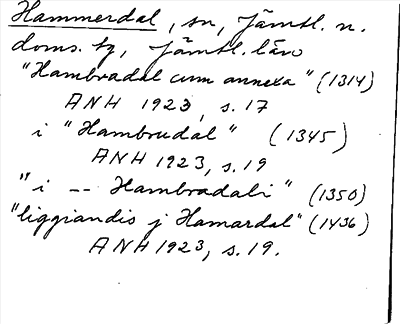 Hammerdal, sn, Jämtl. n.
doms. tg, Jämtl. län
"Hambradal cum annexa" (1314)
ANH 1923, s. 17
i "Hambrudal" (1345)
ANH 1923, s. 19
"i -- Hambradali" (1350)
"liggiandis j Hamardal" (1436)
ANH 1923, s. 19.